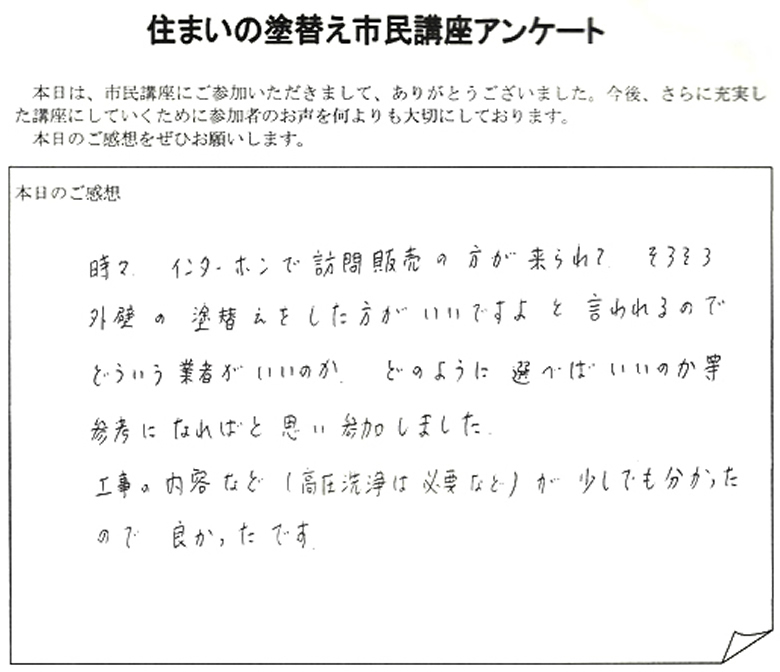 住まいの塗替え市民講座アンケート
本日は、市民講座にご参加いただきまして、ありがとうございました。今後、さらに充実し
た講座にしていくために参加者のお声を何よりも大切にしております。
本日のご感想をぜひお願いします。
本日のご感想
時々、インターホンで訪問販売の方が来られて、そろそろ
外壁の塗替えをした方がいいですよと言われるので
どういう業者がいいのか、どのように選べばいいのか等
参考になればと思い参加しました。
工事の内容など（高圧洗浄は必要など）が少しでも分かった
ので良かったです。